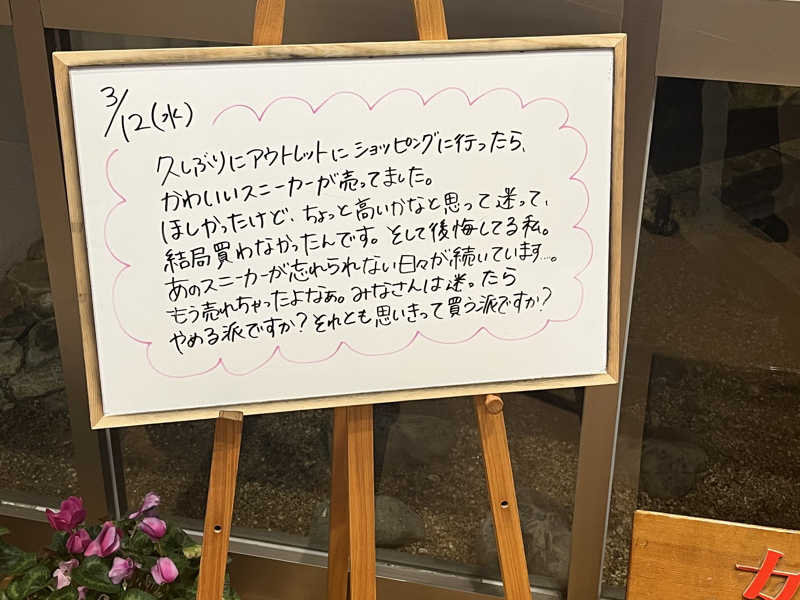 3/12(水)
久しぶりにアウトレットにショッピングに行ったら、
かわいいスニーカーが売ってました。
ほしかったけど、ちょっと高いかなと思って迷って、
結局買わなかったんです。そして後悔してる私。
あのスニーカーが忘れられない日々が続いています…。
もう売れちゃったよなぁ。みなさんは迷ったら
やめる派ですか？それとも思いきって買う派ですか？